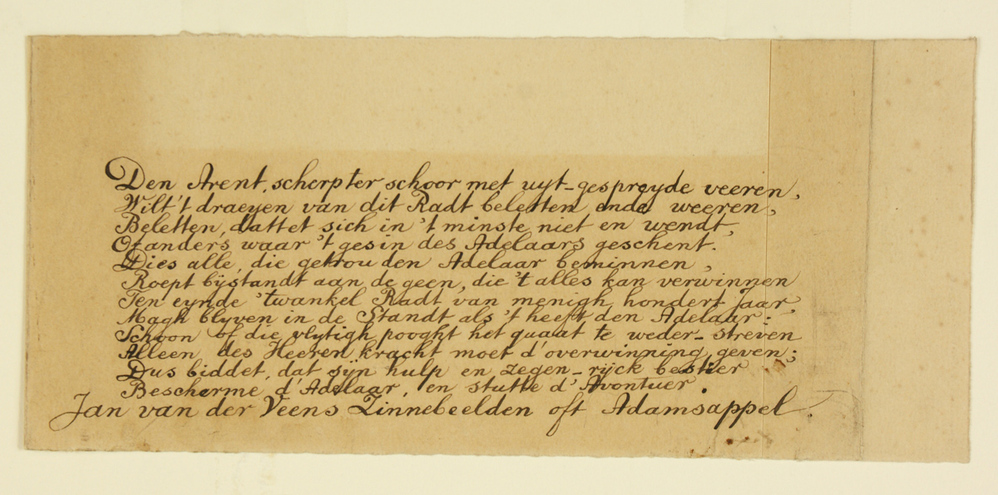 Den Arent, scherp ter schoor met uyt-gespreyde veeren,
Wilt 't draeyen van dit Radt beletten ende weeren,
Beletten, dattet sich in 't minste niet en wendt,
Of anders waar 't gesin des Adelaars geschent.
Dies alle, die getrou den Adelaar beminnen,
Roept bystandt aan de geen, die 't alles kan verwinnen
Ten eynde 't wankel Radt van menigh hondert Jaar
Magh blyven in de Standt als 't heeft den Adelaar:
Schoon of die vlytigh pooght het quaat te weder-streven
Alleen des Heeren kracht moet d'overwinning geven;
Dus biddet, dat syn hulp en zegen-ryck bestier
Bescherme d'Adelaar, en stutte d'Avontuer.
Jan van der Veens Zinnebeelden oft Adamsappel.